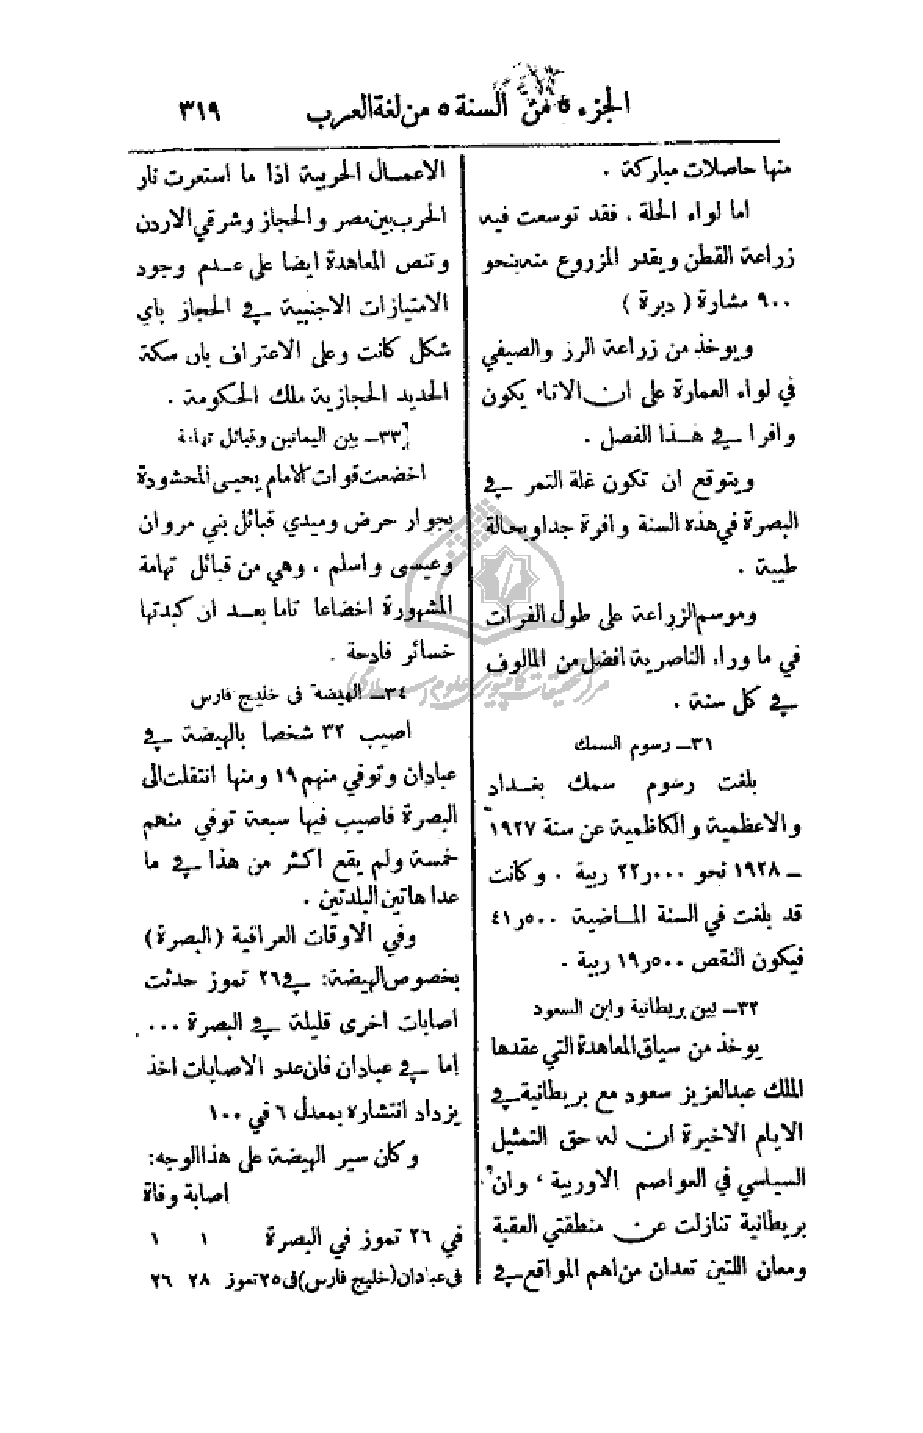 الجزء ٥ من السنة ٥ من لغة العرب ٣١٩
منها حاصلات مباركة .
اما لواء الحلة ، فقد توسعت فيه
زراعة القطن ويقدر المزروع منه بنحو
٩٠٠ مشارة ( دبرة )
ويوخذ من زراعة الرز والصيفي
في لواء العمارة على ان الاتاء يكون
وافرا في هذا الفصل .
ويتوقع ان تكون غلة التمر في
البصرة في هذه السنة وافرة جدا وبحالة
طيبة .
وموسم الزراعة على طول الفرات
في ما وراء الناصرية افضل من المالوف
في كل سنة .
٣١ــ رسوم السمك
بلغت رسوم سمك بغداد
والاعظمية والكاظمية عن سنة ١٩٢٧
ــ ١٩٢٨ نحو ٢٢٫٠٠٠ ربية . وكانت
قد بلغت في السنة الماضية ٤١٫٥٠٠
فيكون النقص ١٩٫٥٠٠ ربية .
٣٢ــ بين بريطانية وابن السعود
يوخذ من سياق المعاهدة التي عقدها
الملك عبدالعزيز سعود مع بريطانية في
الايام الاخيرة ان له حق التمثيل
السياسي في العواصم الاوربية ، وان
بريطانية تنازلت عن منطقتي العقبة
ومعان اللتين تعدان من اهم المواقع في
الاعمال الحربية اذا ما استعرت نار
الحرب بين مصر والحجاز وشرقي الاردن
وتنص المعاهدة ايضا على عدم وجود
الامتيازات الاجنبية في الحجاز باي
شكل كانت وعلى الاعتراف بان سكة
الحديد الحجازية ملك الحكومة .
٣٣ــ بين اليمانين وقبائل تهامة
اخضعت قوات الامام يحيى المحشودة
بجوار حرض وميدي قبائل بني مروان
وعيسى واسلم ، وهي من قبائل تهامة
المشهورة اخضاعا تاما بعد ان كبدتها
خسائر فادحة .
٣٤ــ الهيضة في خليج فارس
اصيب ٣٢ شخصا بالهيضة في
عبادان وتوفي منهم ١٩ ومنها انتقلت الى
البصرة فاصيب فيها سبعة توفي منهم
خمسة ولم يقع اكثر من هذا في ما
عدا هاتين البلدتين .
وفي الاوقات العراقية (البصرة)
بخصوص الهيضة: في ٢٦ تموز حدثت
اصابات اخرى قليلة في البصرة ....
اما في عبادان فان عدد الاصابات اخذ
يزداد انتشاره بمعدل ٦ في ١٠٠
وكان سير الهيضة على هذا الوجه:
اصابة وفاة
في ٢٦ تموز في البصرة ١ ١
في عبادان (خليج فارس) في ٢٥ تموز ٢٨ ٢٦